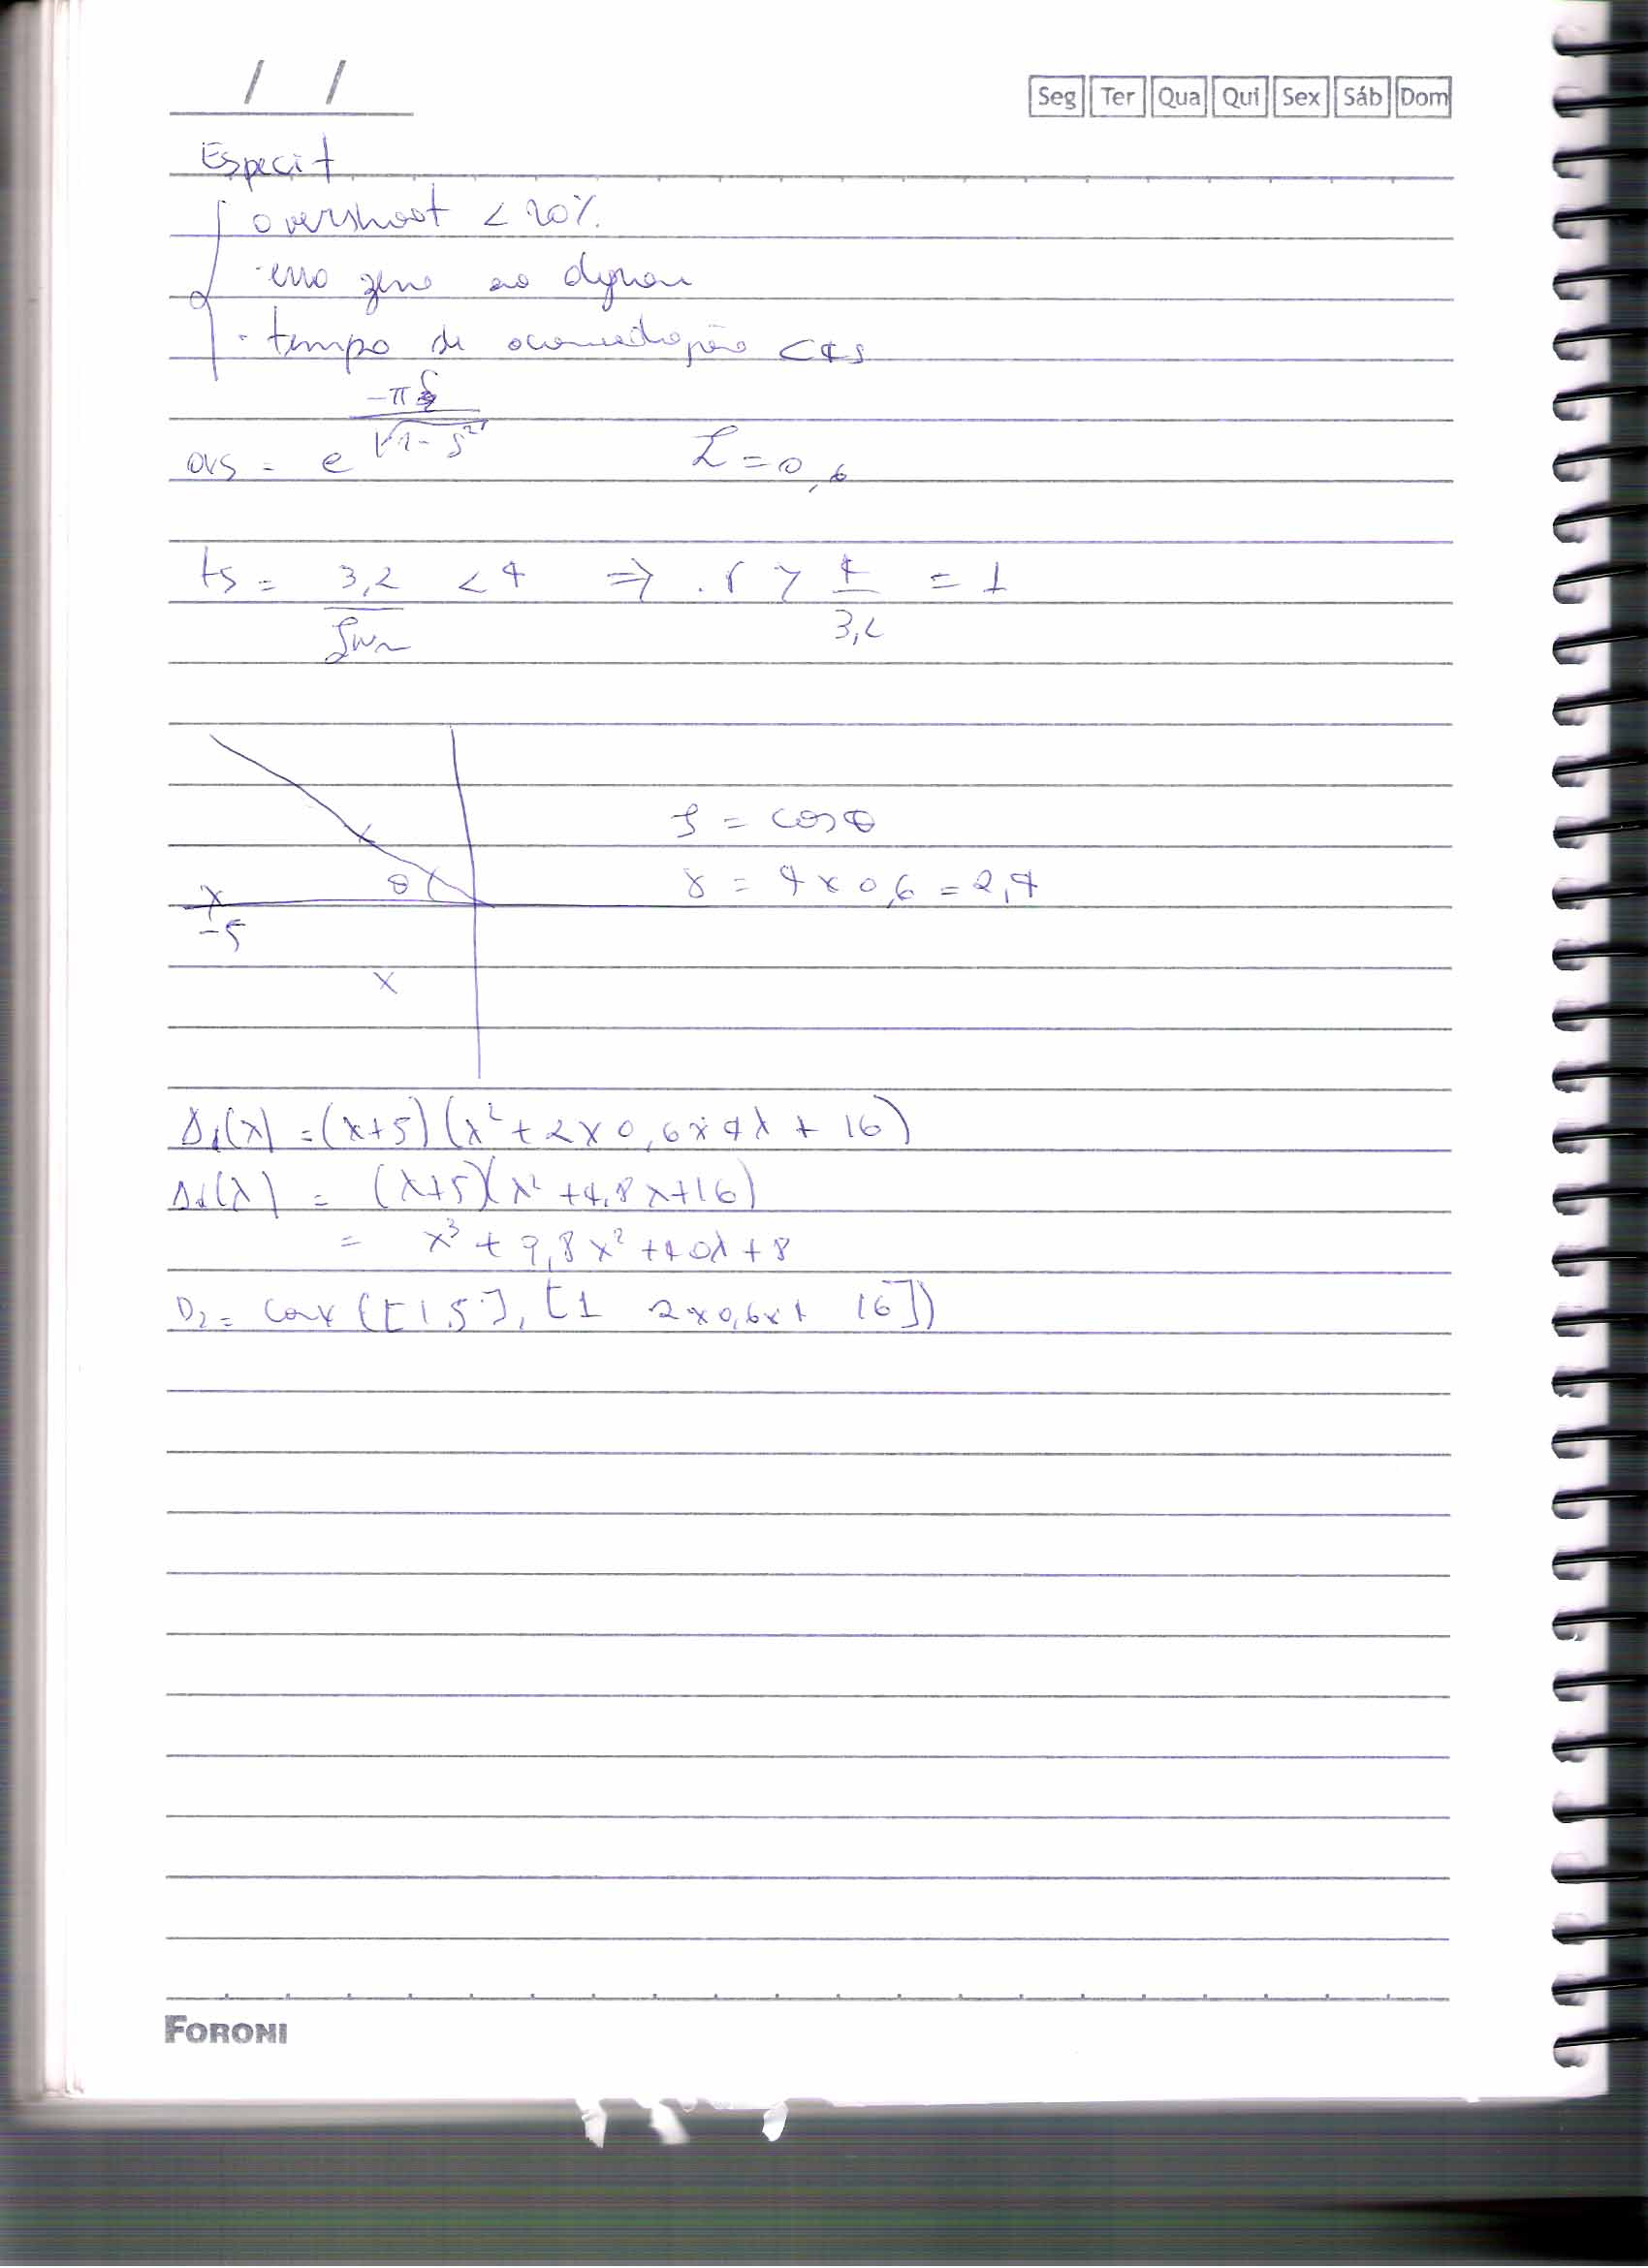 / /
Seg Ter Qua Qui Sex Sáb Dom
Especif
overshoot < 20%.
· erro zero ao degrau
· tempo de acomodação < 4s
ovs = e^(-πζ/√(1-ζ²)) ζ = 0,6
ts = 3,2/ζwn < 4 ⇒ . r > 4/3,2 = 1
ζ = cos θ
θ
γ = 4 x 0,6 = 2,4
x
-5
x
Δd(λ) = (λ+5)(λ² + 2 x 0,6 x 4λ + 16)
Δd(λ) = (λ+5)(λ² + 4,8λ+16)
= λ³ + 9,8λ² + 40λ + 8
D2 = conv([1 5], [1 2x0,6x4 16])
FORONI